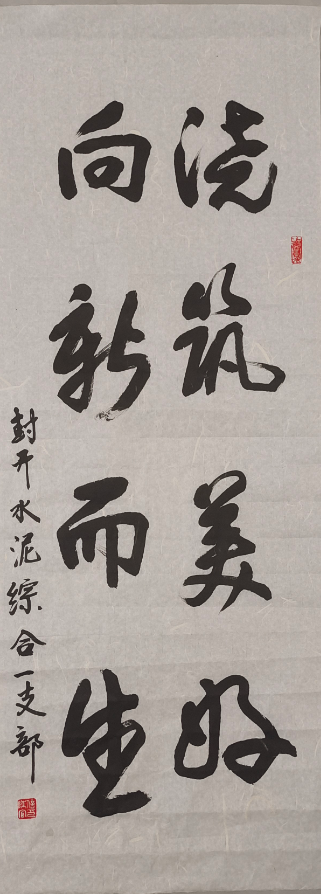 浇筑美好
向新而生
封开水泥综合一支部